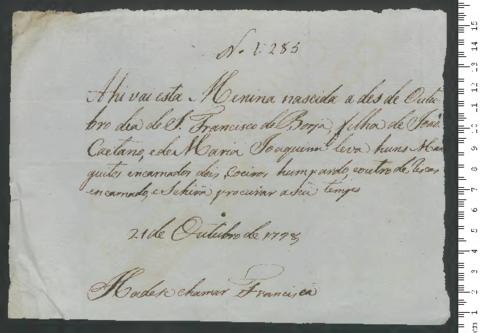 N. 1285
Ahi vai esta Menina nascida a des de Outu
bro dia de S. Francisco de Borja, filha de João
Caetano, e de Maria Joaquina leva huns Man
guitos encarnados dois, Coeiros hum pardo, e outro de
encarnado, e se hirá procurar a seu tempo
21 de Outubro de 1778
Hade se chamar Francisca